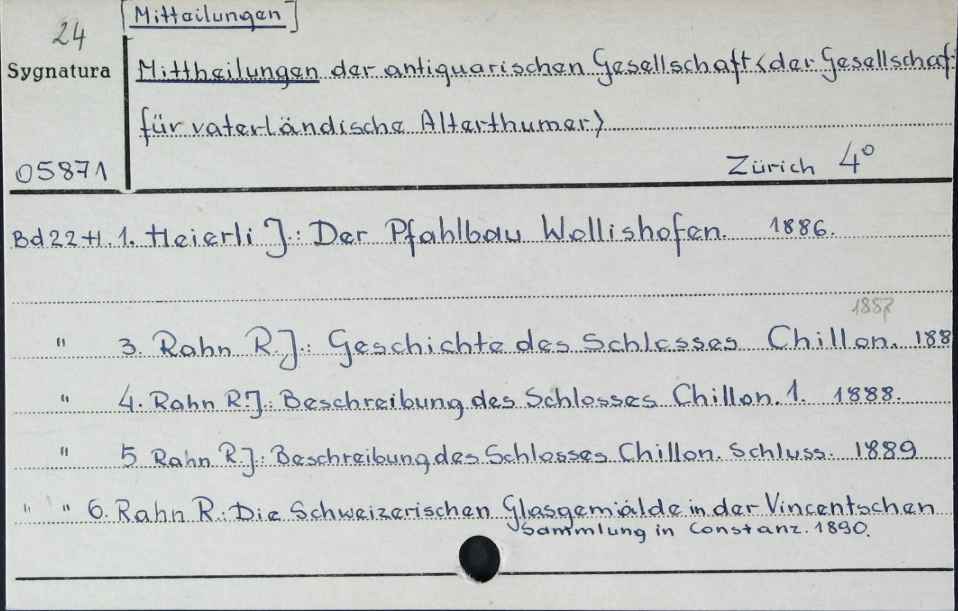 [Mitteilungen]
24
Sygnatura
Mittheilungen der antiquarischen Gesellschaft <der Gesellschaf
für vaterländische Alterthumer>
05871
Zürich 4°
Bd 22 H. 1. Heierli J.: Der Pfahlbau Wollishofen. 1886.
1887
" 3. Rahn R.J.: Geschichte des Schlosses Chillon. 188
" 4. Rahn R.J.: Beschreibung des Schlosses Chillon. 1. 1888.
" 5 Rahn R.J.: Beschreibung des Schlosses Chillon. Schluss. 1889
" " 6. Rahn R.: Die Schweizerischen Glasgemälde in der Vincentschen
Sammlung in Constanz. 1890.